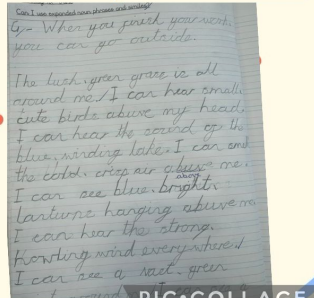 Can I use expanded noun phrases and similes?
G- When you finish your work
you can go outside.
The lush, green grass is all
around me / I can hear small,
cute birds abuve my head.
I can hear the sound of the
blue, winding lake. I can smell
the cold, crisp air abuv me.
above
I can see blue, bright
lanturns hanging abuve me
I can hear the strong,
Howling wind everywhere /
I can see a vast, green
PIC•COLLAGE